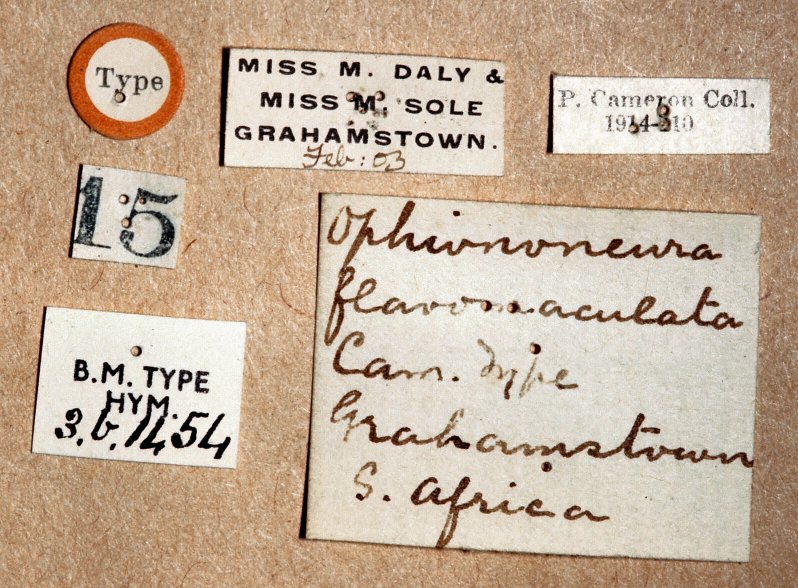 Type
MISS M. DALY &
MISS M. SOLE
GRAHAMSTOWN.
Feb: 03
P. Cameron Coll.
1914-110
15
Ophiononeura
flavomaculata
Cam. Type
Grahamstown
S. Africa
B.M. TYPE
HYM.
3.b.1454